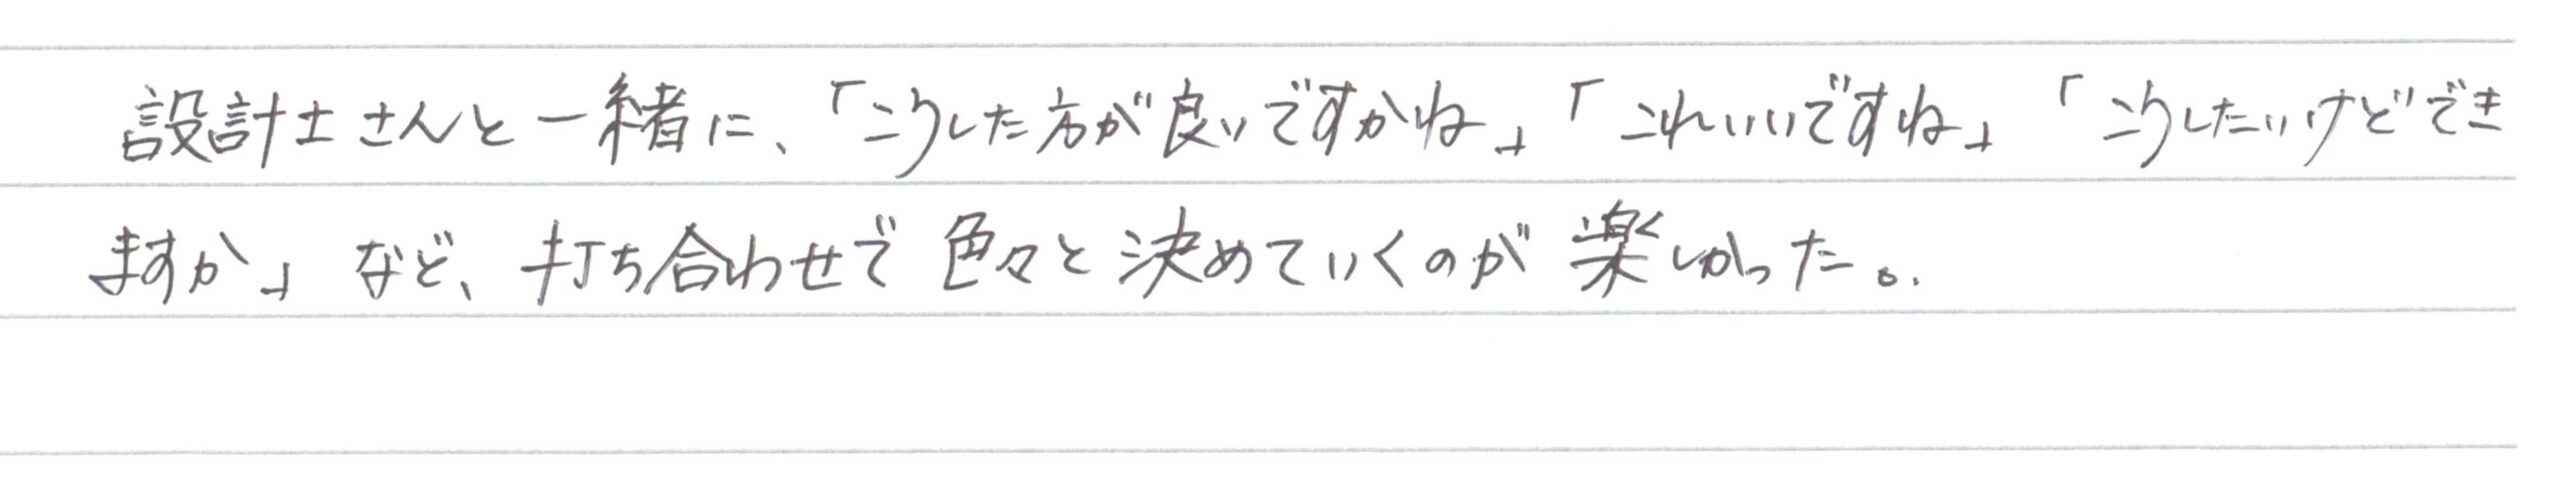 設計士さんと一緒に、「こうした方が良いですかね」「これいいですね」「こうしたいけどでき
ますか」など、打ち合わせで色々と決めていくのが楽しかった。